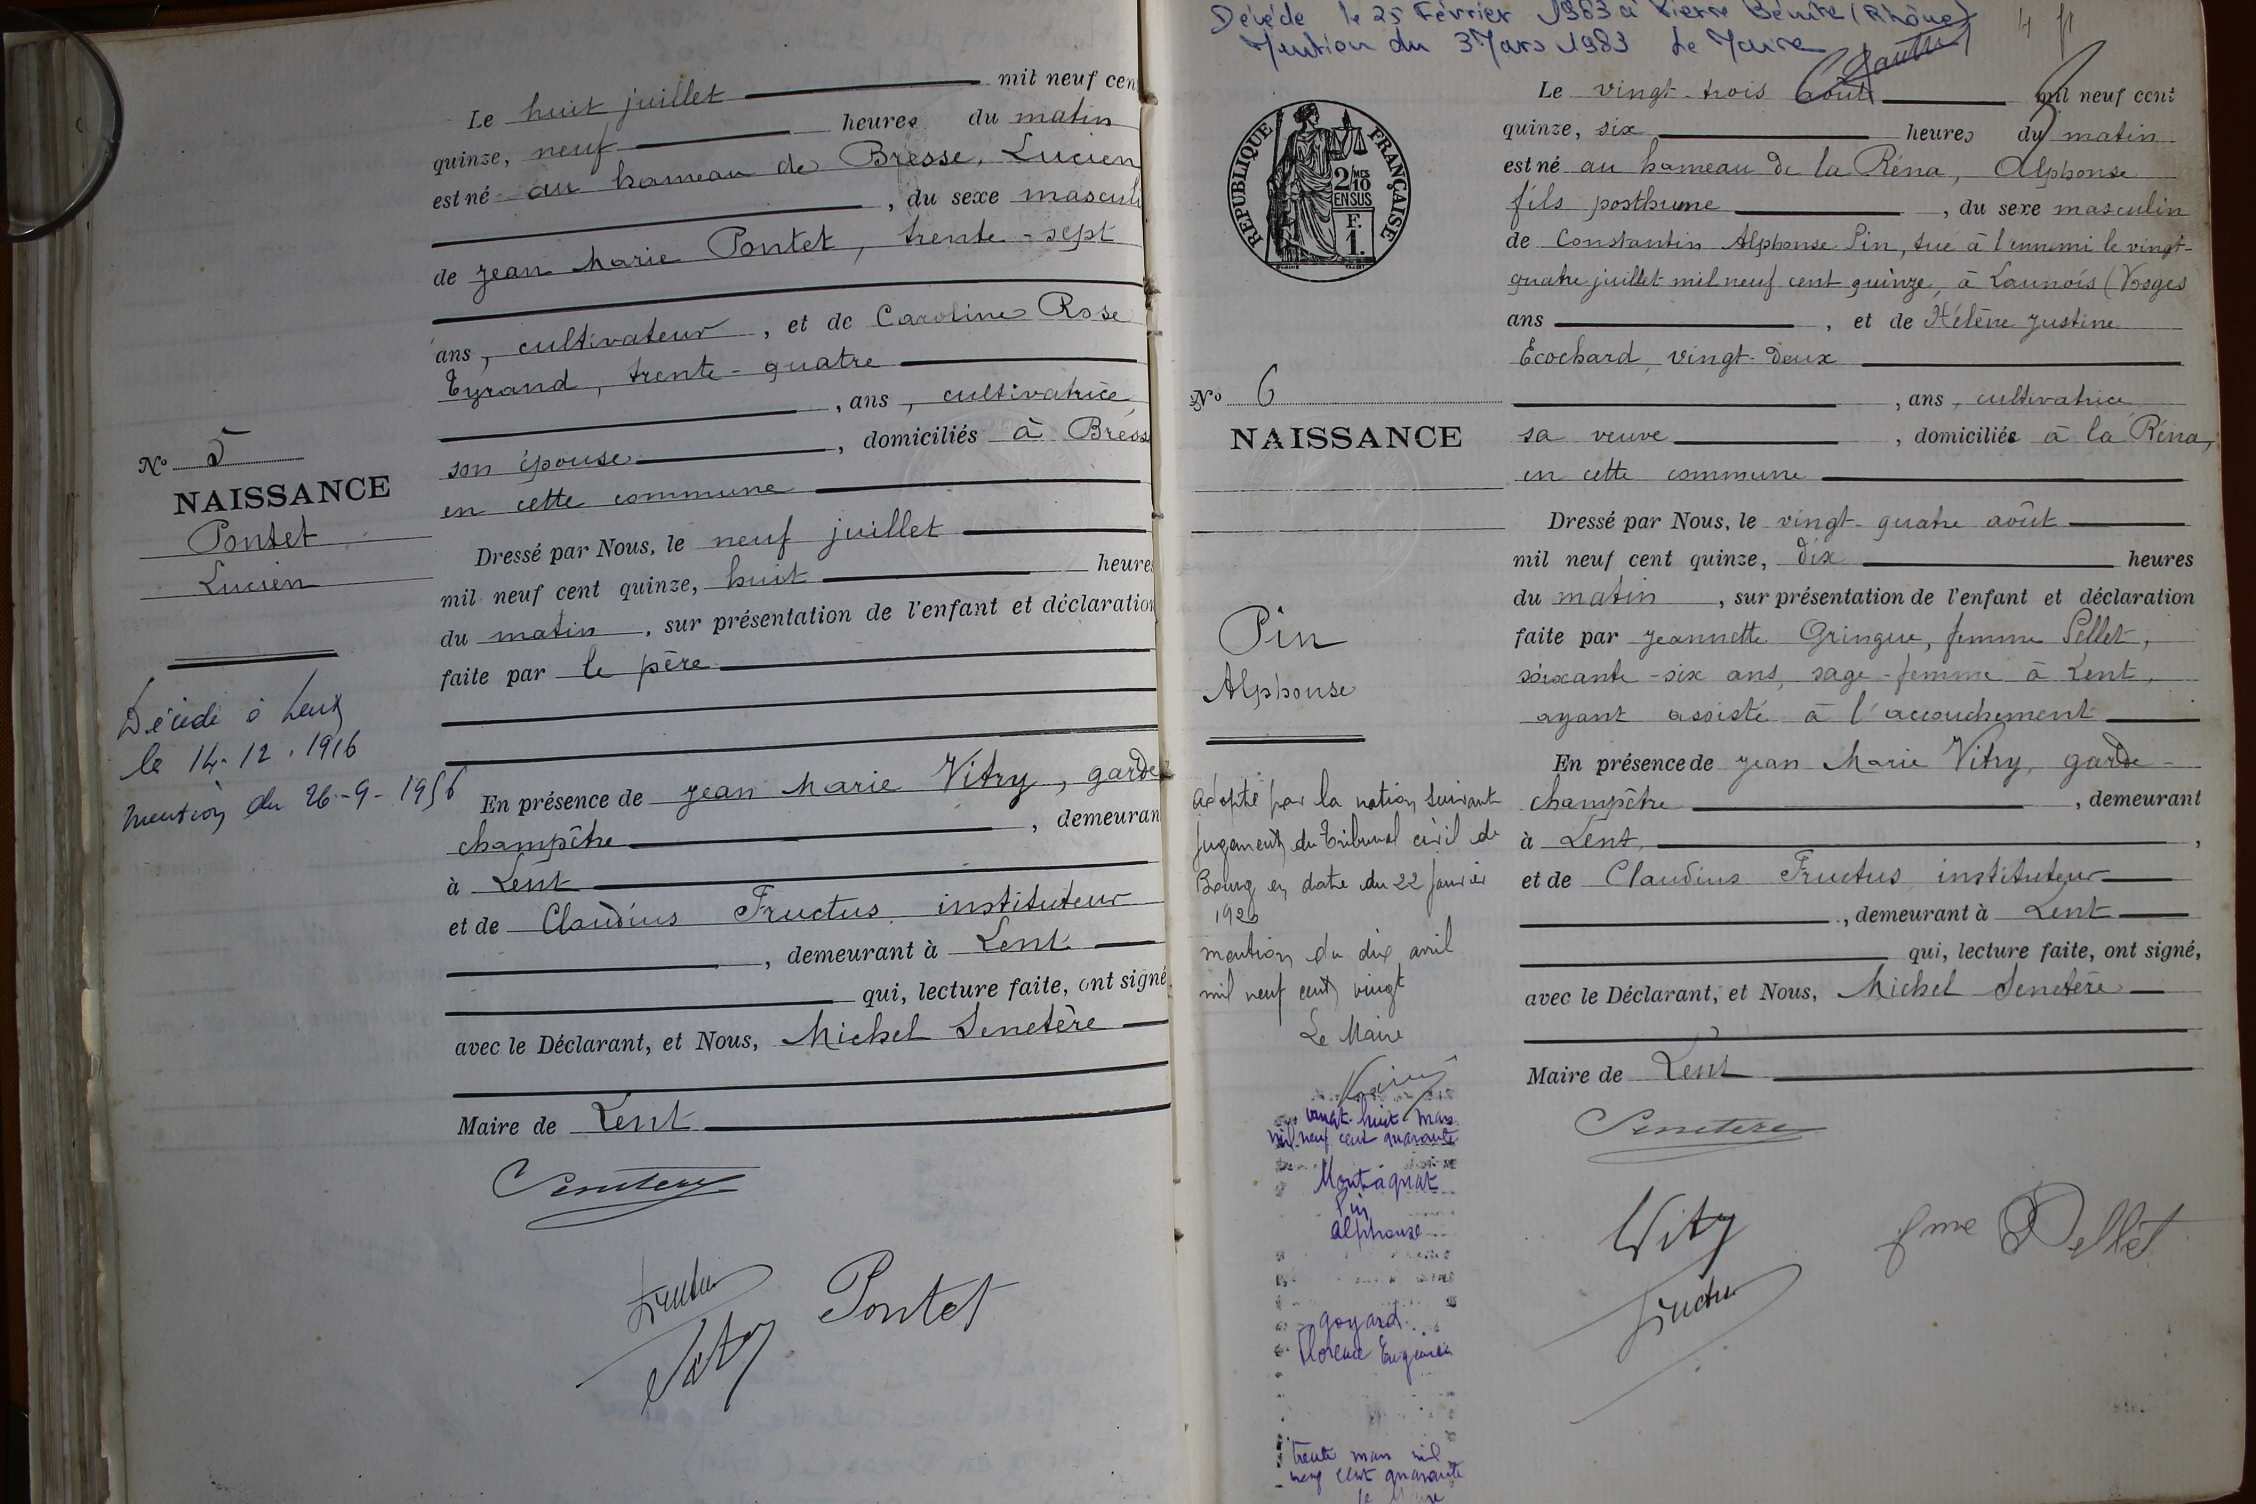 Le huit juillet mil neuf cen
quinze, neuf heures du matin
est né au hameau de Bresse, Lucien
, du sexe masculi
de Jean Marie Pontet, trente-sept
ans, cultivateur, et de Caroline Rose
Tyrand, trente-quatre
, ans, cultivatrice,
son épouse, domiciliés à Bress
en cette commune
Dressé par Nous, le neuf juillet
mil neuf cent quinze, huit heures
du matin, sur présentation de l'enfant et déclaration
faite par le père
En présence de Jean Marie Vitry, garde
champêtre, demeuran
à Lent
et de Claudius Fructus, instituteur
, demeurant à Lent
qui, lecture faite, ont signé
avec le Déclarant, et Nous, Michel Senetère
Maire de Lent
Senetère
Fructus
Vitry
Pontet
No 5
NAISSANCE
Pontet
Lucien
Décédé à Lent
le 14.12.1916
mention du 26-9-1956
Décédé le 25 Février 1983 à Pierre Bénite (Rhône)
Mention du 3 Mars 1983 Le Maire
4 f
REPUBLIQUE FRANÇAISE
2/10 MES
EN SUS
F.
1.
Le vingt-trois août mil neuf cent
quinze, six heures du matin
est né au hameau de la Réna, Alphonse
fils posthume, du sexe masculin
de Constantin Alphonse Pin, tué à l'ennemi le vingt-
quatre juillet mil neuf cent quinze, à Launois (Vosges
ans, et de Hélène Justine
Ecochard, vingt-deux
, ans, cultivatrice
sa veuve, domiciliée à la Réna,
en cette commune
Dressé par Nous, le vingt-quatre août
mil neuf cent quinze, dix heures
du matin, sur présentation de l'enfant et déclaration
faite par Jeannette Gringue, femme Pellet,
soixante-six ans, sage-femme à Lent,
ayant assisté à l'accouchement
En présence de Jean Marie Vitry, garde-
champêtre, demeurant
à Lent,
et de Claudius Fructus, instituteur
, demeurant à Lent
qui, lecture faite, ont signé,
avec le Déclarant, et Nous, Michel Senetère
Maire de Lent
Senetère
Vitry
fme Pellet
Fructus
No 6
NAISSANCE
Pin
Alphonse
Adopté par la nation suivant
jugement du Tribunal civil de
Bourg en date du 22 janvier
1920
mention du dix avril
mil neuf cent vingt
Le Maire
vingt-huit mars
mil neuf cent quarante
Montagnat
Pin
Alphonse
Goyard
Florence Eugénie
trente mars mil
neuf cent quarante
Le Maire